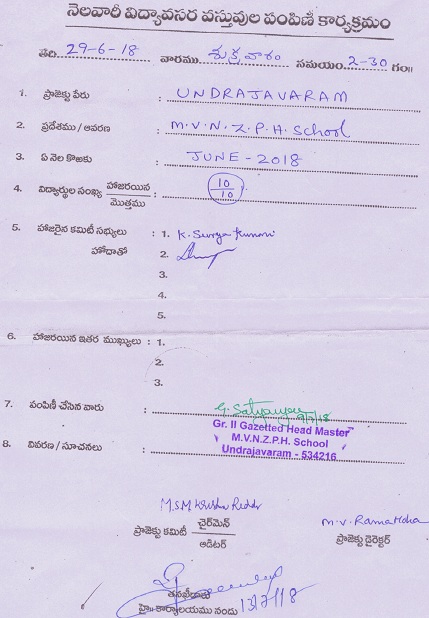 నెలవారీ విద్యావసర వస్తువుల పంపిణీ కార్యక్రమం
తేది 29-6-18 వారము శుక్రవారం సమయం 2-30 గం॥
1. ప్రాజెక్టు పేరు : UNDRAJAVARAM
2. ప్రదేశము / ఆవరణ : M.V.N.Z.P.H. School
3. ఏ నెల కొఱకు : JUNE - 2018
4. విద్యార్థుల సంఖ్య హాజరయిన / మొత్తము : 10/10
5. హాజరైన కమిటీ సభ్యులు : 1. K. Surya Kumari
హోదాతో 2.
3.
4.
5.
6. హాజరయిన ఇతర ముఖ్యులు : 1.
2.
3.
7. పంపిణీ చేసిన వారు :
Gr. II Gazetted Head Master
M.V.N.Z.P.H. School
8. వివరణ / సూచనలు : Undrajavaram - 534216
M.S.M Krishna Reddy
M.V. Rama Moha
ప్రాజెక్టు కమిటీ చైర్‌మెన్ / ఆడిటర్
ప్రాజెక్టు డైరెక్టర్
తనఖీదారు
హై॥ కార్యాలయము నందు 13/7/18